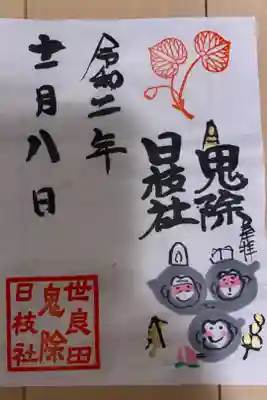 奉拝
鬼除
日枝社
令和二年
十二月八日
世良田
鬼除
日枝社